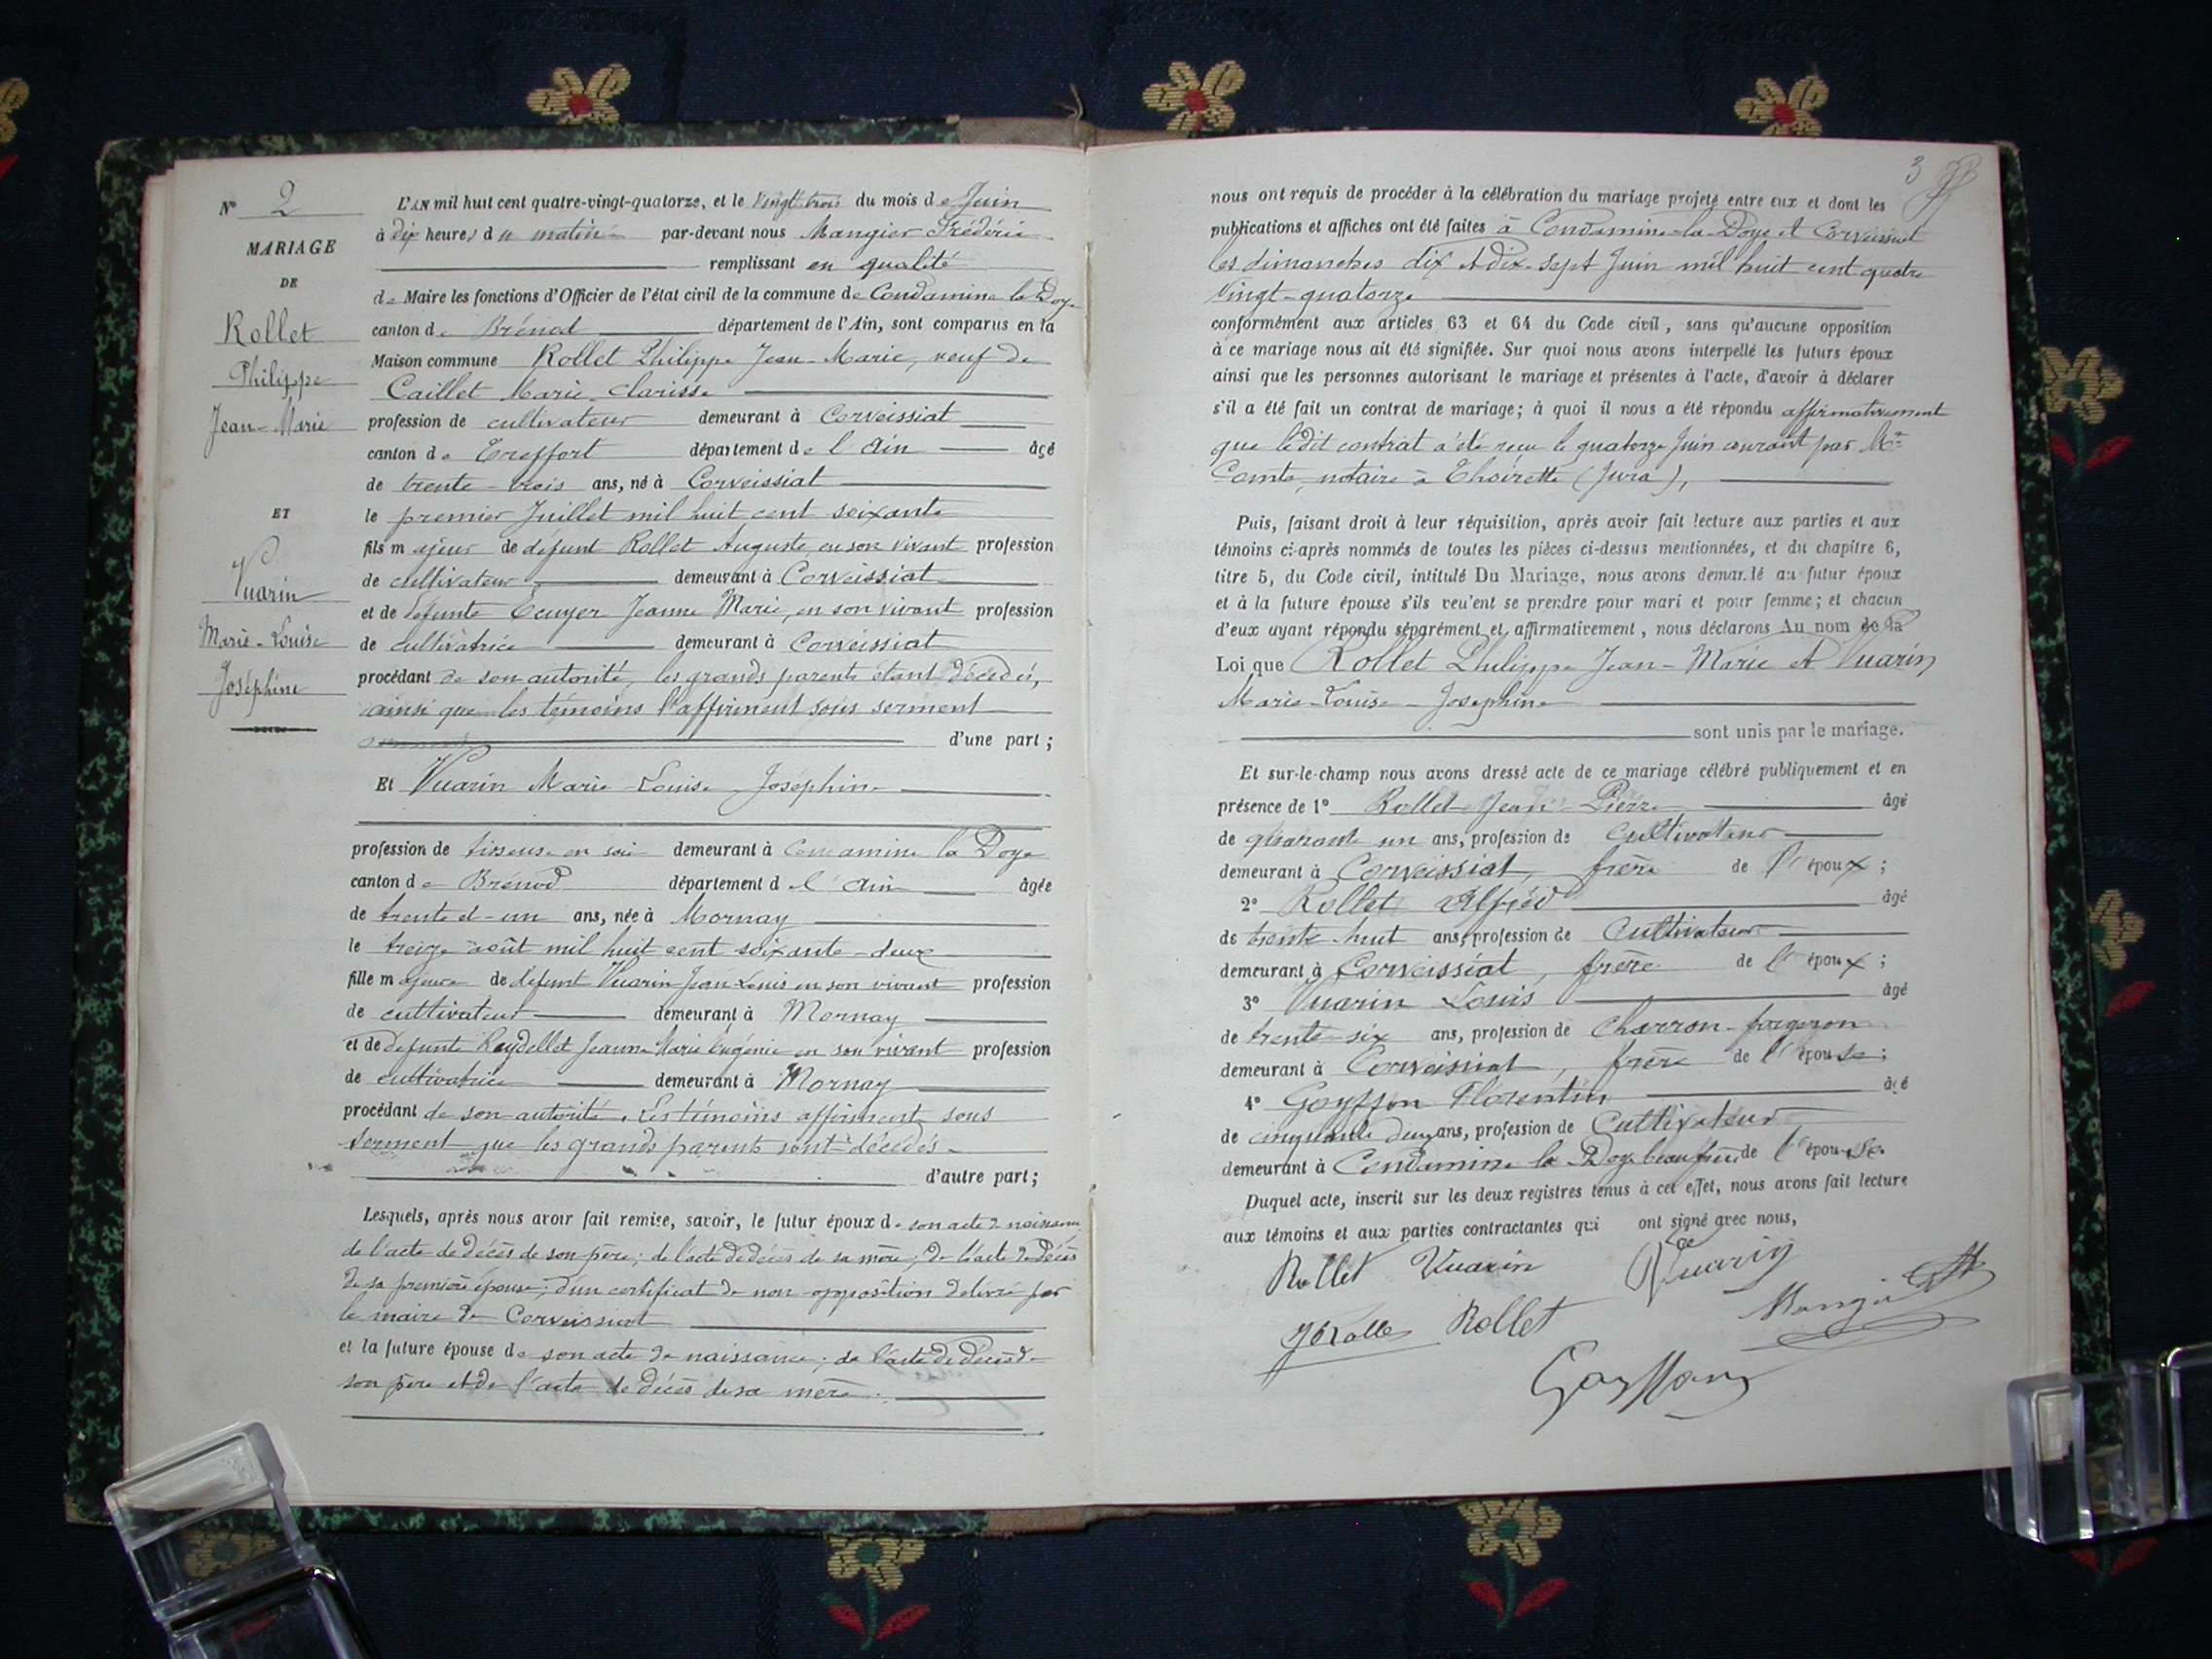 N° 2
MARIAGE
DE
Rollet
Philippe
Jean-Marie
ET
Vuarin
Marie-Louise
Joséphine
L'AN mil huit cent quatre-vingt-quatorze, et le vingt trois du mois de Juin
à dix heures du matin par-devant nous Mangier Frédéric
remplissant en qualité
de Maire les fonctions d'Officier de l'état civil de la commune de Condamine la Doye
canton de Brénod département de l'Ain, sont comparus en la
Maison commune Rollet Philippe Jean-Marie, veuf de
Caillet Marie Clarisse
profession de cultivateur demeurant à Corveissiat
canton de Treffort département de l'Ain âgé
de trente-trois ans, né à Corveissiat
le premier Juillet mil huit cent soixante
fils majeur de défunt Rollet Auguste, en son vivant profession
de cultivateur demeurant à Corveissiat
et de défunte Ecuyer Jeanne Marie, en son vivant profession
de cultivatrice demeurant à Corveissiat
procédant de son autorité, les grands parents étant décédés,
ainsi que les témoins l'affirment sous serment
d'une part ;
Et Vuarin Marie-Louise Joséphine
profession de tisseuse en soie demeurant à Condamine la Doye
canton de Brénod département de l'Ain âgée
de trente et-un ans, née à Mornay
le treize août mil huit cent soixante-deux
fille majeure de défunt Vuarin Jean Louis en son vivant profession
de cultivateur demeurant à Mornay
et de défunte Reydellet Jeanne Marie Eugénie en son vivant profession
de cultivatrice demeurant à Mornay
procédant de son autorité. Les témoins affirment sous
serment que les grands parents sont décédés
d'autre part ;
Lesquels, après nous avoir fait remise, savoir, le futur époux de son acte de naissance
de l'acte de décès de son père ; de l'acte de décès de sa mère ; de l'acte de décès
de sa première épouse ; d'un certificat de non-opposition délivré par
le maire de Corveissiat
et la future épouse de son acte de naissance ; de l'acte de décès de
son père et de l'acte de décès de sa mère.
3
nous ont requis de procéder à la célébration du mariage projeté entre eux et dont les
publications et affiches ont été faites à Condamine-la-Doye et Corveissiat
les dimanches dix et dix-sept Juin mil huit cent quatre
vingt-quatorze
conformément aux articles 63 et 64 du Code civil, sans qu'aucune opposition
à ce mariage nous ait été signifiée. Sur quoi nous avons interpellé les futurs époux
ainsi que les personnes autorisant le mariage et présentes à l'acte, d'avoir à déclarer
s'il a été fait un contrat de mariage ; à quoi il nous a été répondu affirmativement
que ledit contrat a été reçu le quatorze Juin courant par Me
Comte, notaire à Thoirette (Jura),
Puis, faisant droit à leur réquisition, après avoir fait lecture aux parties et aux
témoins ci-après nommés de toutes les pièces ci-dessus mentionnées, et du chapitre 6,
titre 5, du Code civil, intitulé Du Mariage, nous avons demandé au futur époux
et à la future épouse s'ils veulent se prendre pour mari et pour femme ; et chacun
d'eux ayant répondu séparément et affirmativement, nous déclarons Au nom de la
Loi que Rollet Philippe Jean-Marie et Vuarin
Marie-Louise-Joséphine
sont unis par le mariage.
Et sur-le-champ nous avons dressé acte de ce mariage célébré publiquement et en
présence de 1° Rollet Jean-Pierre âgé
de quarante un ans, profession de cultivateur
demeurant à Corveissiat, frère de l'époux ;
2° Rollet Alfréd âgé
de trente-huit ans, profession de cultivateur
demeurant à Corveissiat, frère de l'époux ;
3° Vuarin Louis âgé
de trente-six ans, profession de charron-forgeron
demeurant à Corveissiat, frère de l'épouse ;
4° Goyffon Florentin âgé
de cinquante deux ans, profession de cultivateur
demeurant à Condamine la Doye beau frère de l'épouse.
Duquel acte, inscrit sur les deux registres tenus à cet effet, nous avons fait lecture
aux témoins et aux parties contractantes qui ont signé avec nous,
Rollet Vuarin Vuarin
Rollet Mangier
Goyffon